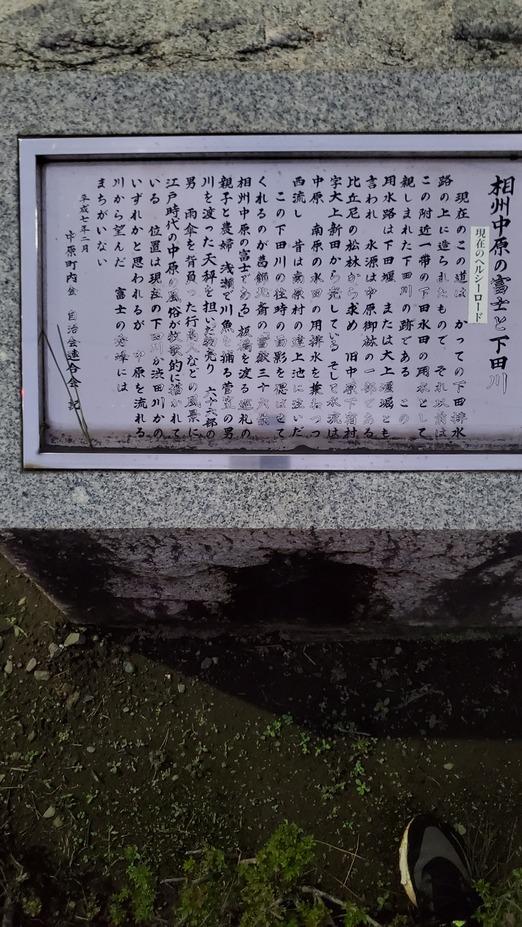 相州中原の富士と下田川
現在のヘルシーロード
現在のこの道は かつての下田排水
路の上に造られたもので それ以前は
この附近一帯の下田水田の用水として
親しまれた下田川の跡である この
用水路は下田堰 または大上堰とも
言われ 水源は中原御林の一部である
比丘尼の松林から求め 旧中原下宿村
字大上新田から発している そして水流は
中原 南原の水田の用排水を兼ねつつ
西流し 昔は南原村の道上池に注いだ
この下田川の往時の面影を偲ばせて
くれるのが葛飾北斎の富嶽三十六景
相州中原の富士である 板橋を渡る巡礼の
親子と農婦 浅瀬で川魚を捕る菅笠の男
川を渡った天秤を担いだ物売り 六十六部の
男 雨傘を背負った行商人などの風景に
江戸時代の中原の風俗が牧歌的に描かれて
いる 位置は現在の下田川か渋田川かの
いずれかと思われるが 中原を流れる
川から望んだ 富士の秀峰には
まちがいない
平成七年二月
中原町内会 自治会連合会 記